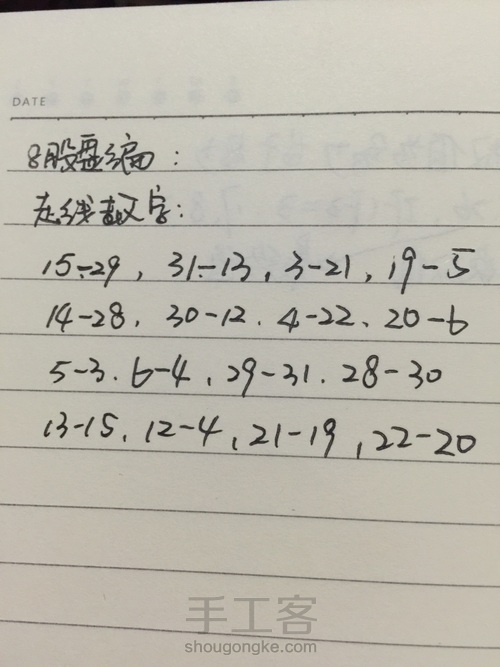 DATE
8股盘编:
走线数字:
15-29, 31-13, 3-21, 19-5
14-28, 30-12, 4-22、20-6
5-3、6-4, 29-31, 28-30
13-15、12-4, 21-19, 22-20
手工客
shougongke.com